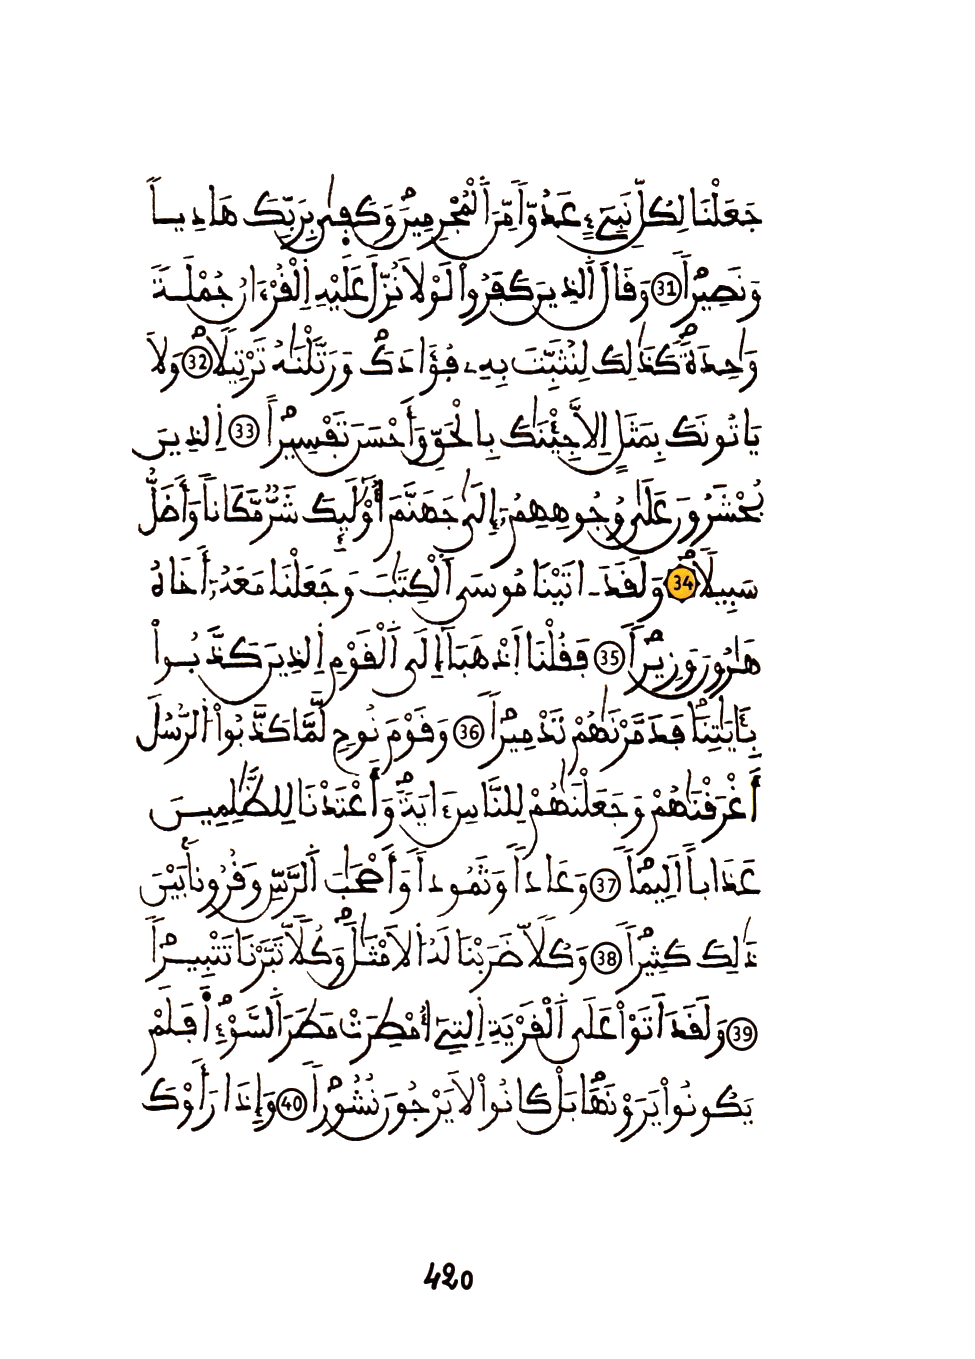 جَعَلْنَا لِكُلِّ نَبِيٓءٍ عَدُوّاٗ مِّنَ اَ۬لْمُجْرِمِينَۖ وَكَف۪ىٰ بِرَبِّكَ هَادِياٗ
وَنَصِيراٗۖ 31 وَقَالَ اَ۬لذِينَ كَفَرُواْ لَوْلَا نُزِّلَ عَلَيْهِ اِ۬لْقُرْءَانُ جُمْلَةٗ
وَٰحِدَةٗۖ كَذَٰلِكَ لِنُثَبِّتَ بِهِۦ فُؤَادَكَۖ وَرَتَّلْنَٰهُ تَرْتِيلاٗۖ 32 وَلَا
يَاتُونَكَ بِمَثَلٍ اِلَّا جِئْنَٰكَ بِالْحَقِّ وَأَحْسَنَ تَفْسِيراًۖ 33 اِ۬لذِينَ
يُحْشَرُونَ عَلَىٰ وُجُوهِهِمُۥٓ إِلَىٰ جَهَنَّمَ أُوْلَٰٓئِكَ شَرّٞ مَّكَاناٗ وَأَضَلُّ
سَبِيلاٗۖ 34 وَلَقَدَ اٰتَيْنَا مُوسَى اَ۬لْكِتَٰبَ وَجَعَلْنَا مَعَهُۥٓ أَخَاهُ
هَٰرُونَ وَزِيراٗۖ 35 فَقُلْنَا اَ۪ذْهَبَآ إِلَى اَ۬لْقَوْمِ اِ۬لذِينَ كَذَّبُواْ
بِـَٔايَٰتِنَاۖ فَدَمَّرْنَٰهُمْ تَدْمِيراٗۖ 36 وَقَوْمَ نُوحٖ لَّمَّا كَذَّبُواْ اُ۬لرُّسُلَ
أَغْرَقْنَٰهُمْ وَجَعَلْنَٰهُمْ لِلنَّاسِ ءَايَةٗۖ وَأَعْتَدْنَا لِلظَّٰلِمِينَ
عَذَاباً اَلِيماٗۖ 37 وَعَاداٗ وَثَمُوداٗ وَأَصْحَٰبَ اَ۬لرَّسِّ وَقُرُوناَۢ بَيْنَ
ذَٰلِكَ كَثِيراٗۖ 38 وَكُلّاٗ ضَرَبْنَا لَهُ اُ۬لَامْثَٰلَۖ وَكُلّاٗ تَبَّرْنَا تَتْبِيراٗۖ
39 وَلَقَدَ اَتَوْاْ عَلَى اَ۬لْقَرْيَةِ اِ۬لتِےٓ أُمْطِرَتْ مَطَرَ اَ۬لسَّوْءِۖ اَ۬فَلَمْ
يَكُونُواْ يَرَوْنَهَاۖ بَلْ كَانُواْ لَا يَرْجُونَ نُشُوراٗۖ 40 وَإِذَا رَأَوْكَ
420